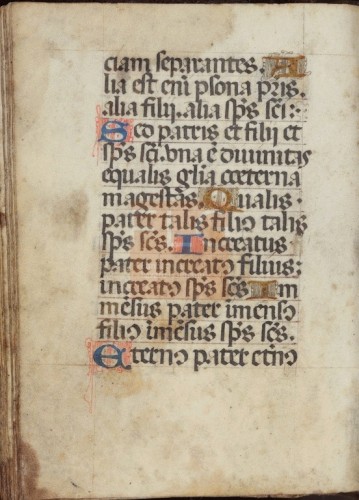 ciam separantes. A
lia est eni psona pris.
alia filii. alia sps sci:
Sed patris et filii et
sps sci. una e divinitas
equalis glia coeterna
magestas. Qualis
pater talis filio talis
sps scs. Increatus
pater increato filius;
increato sps scs. Im
mesus pater imenso
filio imesus sps scs.
Eterno pater etno